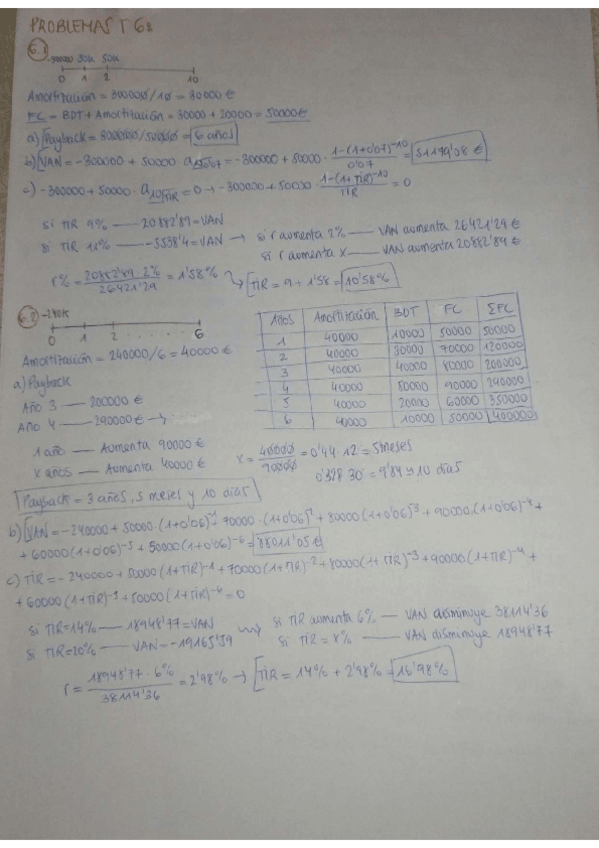 PROBLEMAS T 6B
6.1
-300000 50k 50k
0 1 2 10
Amortización = 300000/10 = 30000 €
FC = BDT + Amortización = 30000 + 20000 = 50000 €
a) Payback = 300000/50000 = 6 años
b) VAN = -300000 + 50000 · a10|0'07 = -300000 + 50000 · 1-(1+0'07)^-10 / 0'07 = 51179'08 €
c) -300000 + 50000 · a10|TIR = 0 → -300000 + 50000 · 1-(1+TIR)^-10 / TIR = 0
si TIR 9% —— 20882'89 = VAN
si TIR 11% —— -5538'4 = VAN → si r aumenta 2% —— VAN aumenta 26421'29 €
si r aumenta x —— VAN aumenta 20882'89 €
r% = 20882'89 · 2% / 26421'29 = 1'58% → TIR = 9 + 1'58 = 10'58%
6.2 -240k
0 1 2 ...... 6
Amortización = 240000/6 = 40000 €
Años Amortización BDT FC ΣFC
1 40000 10000 50000 50000
2 40000 30000 70000 120000
3 40000 40000 80000 200000
4 40000 50000 90000 290000
5 40000 20000 60000 350000
6 40000 10000 50000 400000
a) Payback
Año 3 —— 200000 €
Año 4 —— 290000 € →
1 año —— Aumenta 90000 €
x años —— Aumenta 40000 €
x = 40000 / 90000 = 0'44 · 12 = 5 meses
0'328 · 30 = 9'84 ≈ 10 días
Payback = 3 años, 5 meses y 10 días
b) VAN = -240000 + 50000 · (1+0'06)^-1 70000 · (1+0'06)^-2 + 80000 (1+0'06)^-3 + 90000 · (1+0'06)^-4 +
+ 60000 (1+0'06)^-5 + 50000 (1+0'06)^-6 = 88011'05 €
c) TIR = -240000 + 50000 (1+TIR)^-1 + 70000 (1+TIR)^-2 + 80000 (1+TIR)^-3 + 90000 (1+TIR)^-4 +
+ 60000 (1+TIR)^-5 + 50000 (1+TIR)^-6 = 0
si TIR = 14% —— 18948'77 = VAN
si TIR = 20% —— VAN = -19165'59
si TIR aumenta 6% —— VAN disminuye 38114'36
si TIR = x% —— VAN disminuye 18948'77
r = 18948'77 · 6% / 38114'36 = 2'98% → TIR = 14% + 2'98% = 16'98%